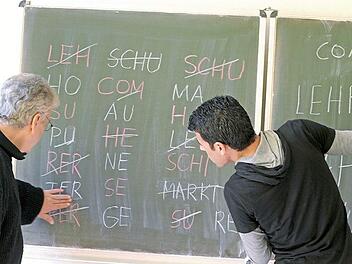 LEH SCHU SCHU
HO COM MA
SU AU H
PU HE LE
RER NE SCHI
TER SE MARKT
ER GE SU RE
CO
LEHR